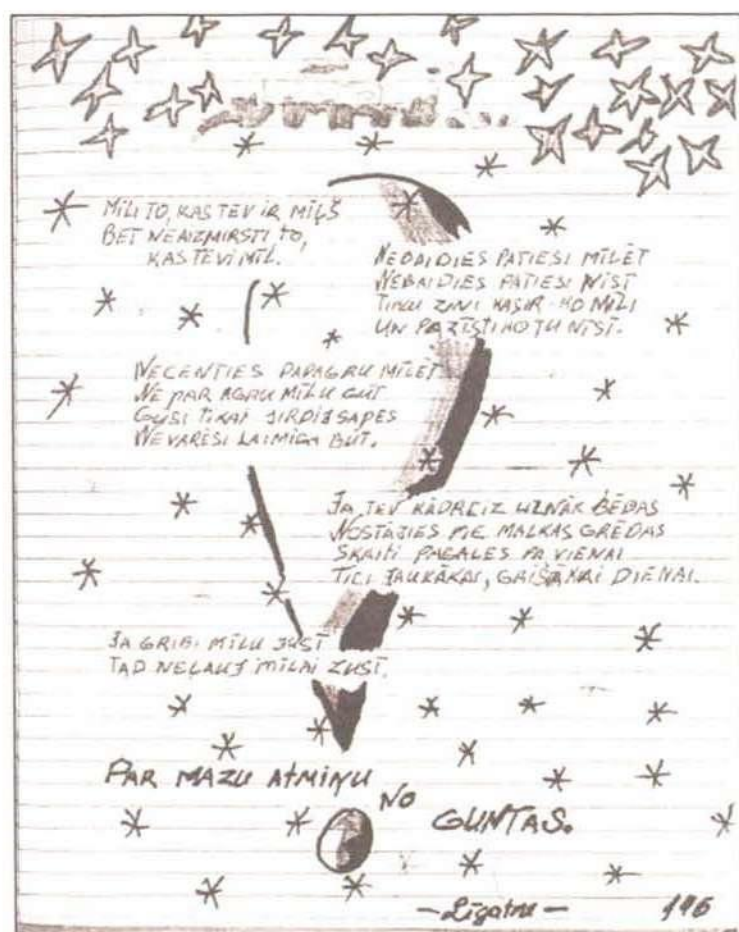 MĪLI TO, KAS TEV IR MĪĻŠ
BET NEAIZMIRSTI TO,
KAS TEVI MĪL.
NEBAIDIES PATIESI MĪLĒT
NEBAIDIES PATIESI NĪST
TIKU ZINI KAS IR KO MĪLI
UN PAZĪSTI KO TU NĪSTI.
NECENTIES PAPAGRU MĪLĒT
NE PAR AGRU MĪLU GŪT
GŪSI TIKAI SIRDIJ SAPES
NEVARĒSI LAIMĪGA BŪT.
JA TEV KĀDREIZ UZNĀK BĒDAS
NOSTĀJIES PIE MALKAS GRĒDAS
SKAITI PAGALES PA VIENAI
TICI JAUKĀKAI, GAIŠĀKAI DIENAI.
JA GRIBI MĪLU JUST
TAD NEĻAUJ MĪLAI ZUST.
PAR MAZU ATMIŅU
NO
GUNTAS.
-Līgatne-